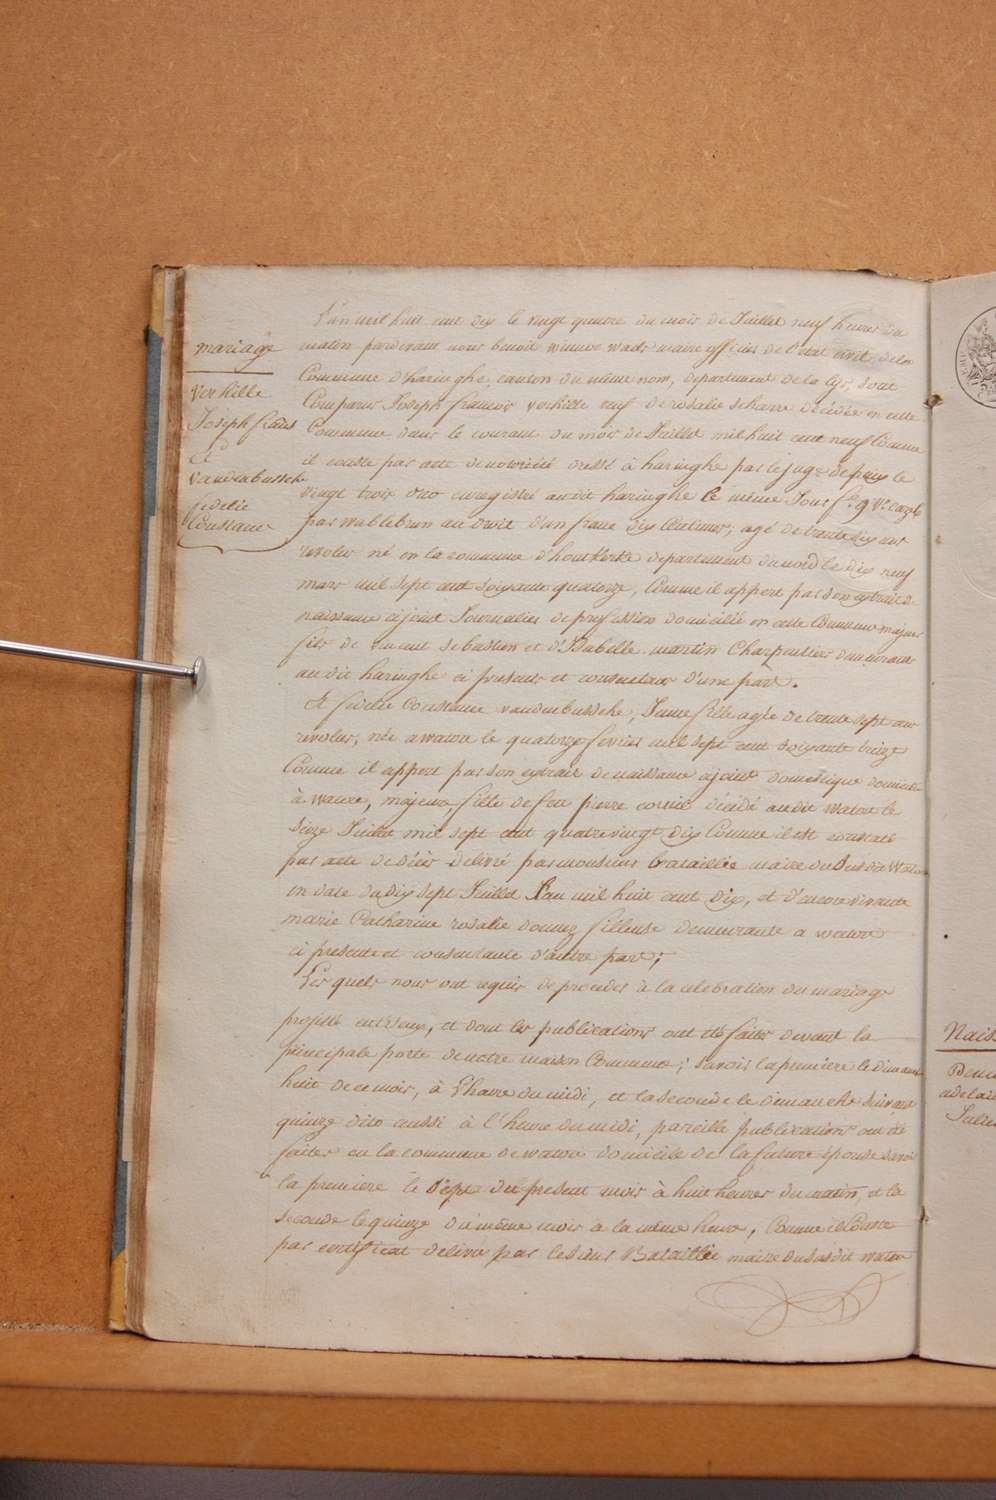 mariage
Verhille
Joseph
et
Vandenbussche
fidelie
Constance
L'an mil huit cent dix le vingt quatre du mois de Juillet neuf heures du
matin pardevant nous benoit winnoc maire officier de l'état civil de la
Commune d'haringhe, canton du même nom, departement de la lys, sont
Comparus Joseph francois verhille veuf de rosalie décédée en cette
Commune dans le courant du mois de Juillet mil huit cent neuf Comme
il conste par acte de notoriété dressé à haringhe par le juge de paix le
vingt trois dito enregistré audit haringhe le même Jour
par mablebrun au droit d'un franc dix Centimes; agé de trente six ans
revolus né en la commune d'houtkerke departement du nord le dix neuf
mars mil sept cent soixante quatorze, Comme il appert par son extrait de
naissance ci joint Journalier de profession domicilié en cette Commune majeur
fils de vincent sebastien et d'Isabelle martin Charpentier demeurant
au dit haringhe ci presents et consentans d'une part.
Et fidelie Constance vandenbussche, Jeune fille agée de trente sept ans
revolus, née a watou le quatorze fevrier mil sept cent soixante treize
Comme il appert par son extrait de naissance ci joint domestique domiciliée
à watou, majeure fille de feu pierre corneil décédé audit watou le
seize Juillet mil sept cent quatre vingt dix Comme il est constaté
par acte de décès delivré par monsieur Bataillie maire du susdit Watou
en date du dix sept Juillet L'an mil huit cent dix, et d'encore vivante
marie Catharine rosalie filleuse demeurante a watou
ci presente et consentante d'autre part;
Les quels nous ont requis de proceder à la celebration du mariage
projetté entr'eux, et dont les publications ont été faites devant la
principale porte de notre maison Commune; savoir la premiere le dimanche
huit de ce mois, à l'heure du midi, et la seconde le dimanche suivant
quinze dito aussi à l'heure du midi, pareille publications ont été
faites en la commune de watou domicile de la future épouse savoir
la premiere le du present mois à huit heures du matin, et la
seconde le quinze du même mois à la même heure, Comme il Conste
par certificat delivré par le Sieur Bataillie maire du susdit watou
Nais